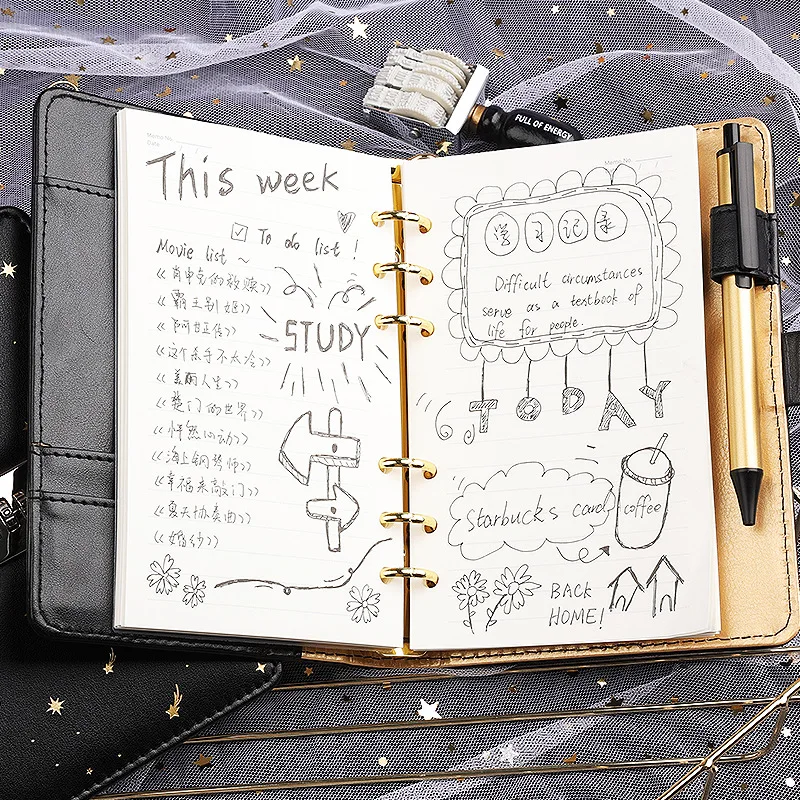 FULL OF ENERGY
Memo No.
Date
This week
To do list !
Movie list ~
《肖申克的救赎》
《霸王别姬》
《阿甘正传》
《这个杀手不太冷》
《美丽人生》
《楚门的世界》
《怦然心动》
《海上钢琴师》
《幸福来敲门》
《夏天协奏曲》
《婚纱》
STUDY
Memo No.
学习记录
Difficult circumstances
serve as a textbook of
life for people.
TODAY
Starbucks card
coffee
BACK
HOME!